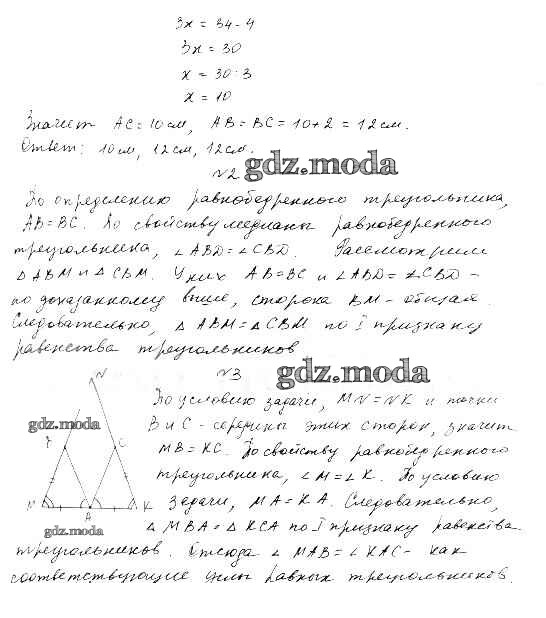 3x = 34 - 4
3x = 30
x = 30 : 3
x = 10
Значит AC = 10 см, AB = BC = 10 + 2 = 12 см.
Ответ: 10 см, 12 см, 12 см.
№2 gdz.moda
По определению равнобедренного треугольника,
AB = BC. По свойству медианы равнобедренного
треугольника, ∠ABD = ∠CBD. Рассмотрим
△ABM и △CBM. У них AB = BC и ∠ABD = ∠CBD -
по доказанному выше, сторона BM - общая.
Следовательно, △ABM = △CBM по I признаку
равенства треугольников
№3 gdz.moda
N
По условию задачи, MN = NK и точки
gdz.moda
B и C - середины этих сторон, значит
C
MB = KC. По свойству равнобедренного
треугольника, ∠M = ∠K. По условию
M A K
задачи, MA = KA. Следовательно,
gdz.moda
△MBA = △KCA по I признаку равенства
треугольников. Отсюда ∠MAB = ∠KAC - как
соответствующие углы равных треугольников.